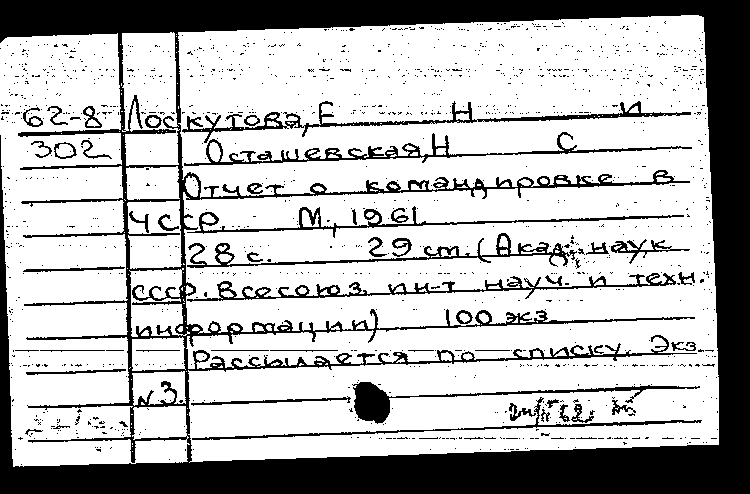 62-8 Лоскутова, Е Н и
302 Осташевская, Н С
Отчет о командировке в
ЧССР. М., 1961
28 с. 29 см. (Акад. наук
СССР. Всесоюз. ин-т науч. и техн.
информации) 100 экз.
Рассылается по списку. Экз.
№3.